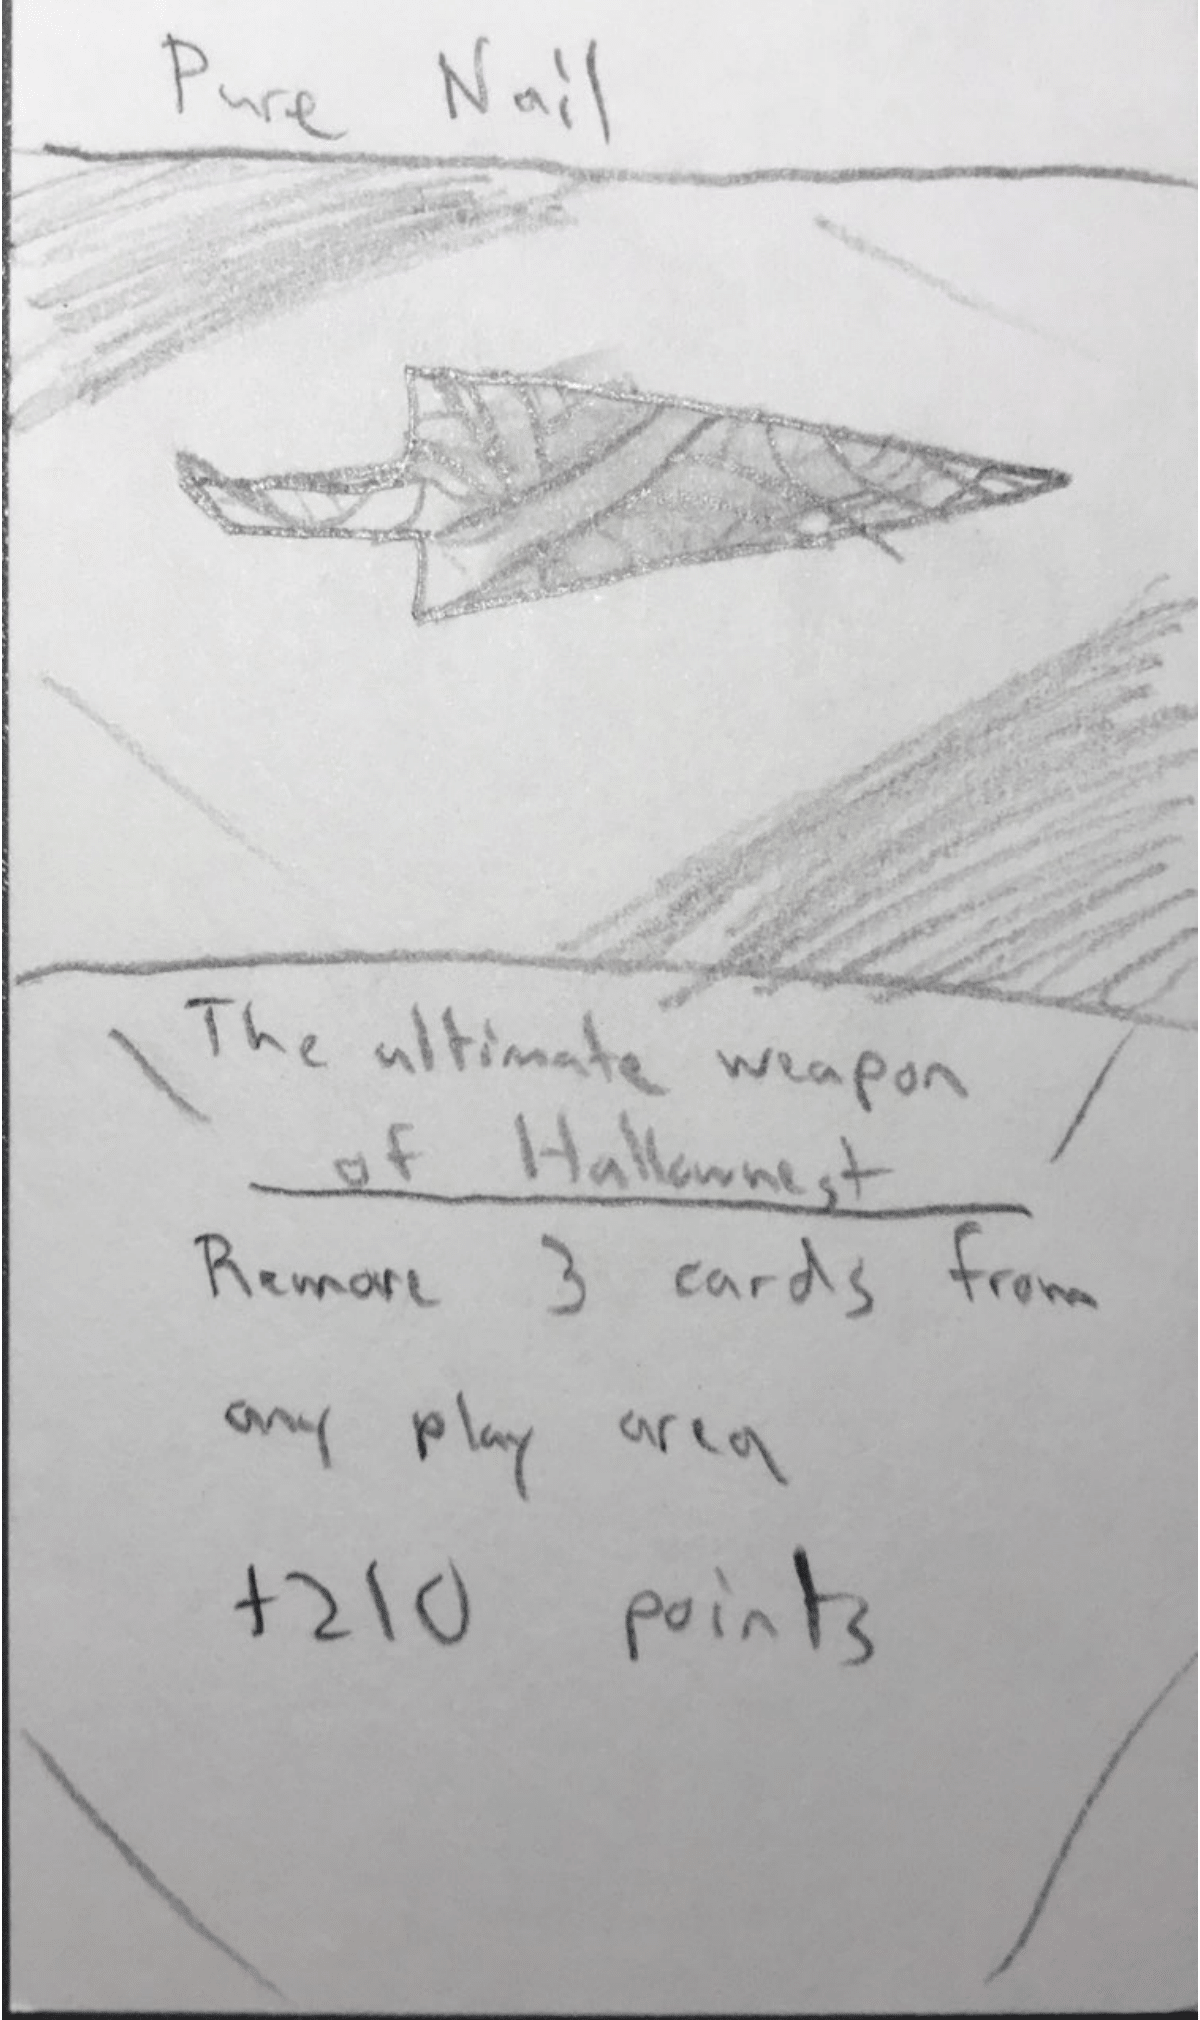 Pure Nail
The ultimate weapon
of Hallownest
Remove 3 cards from
any play area
+210 points